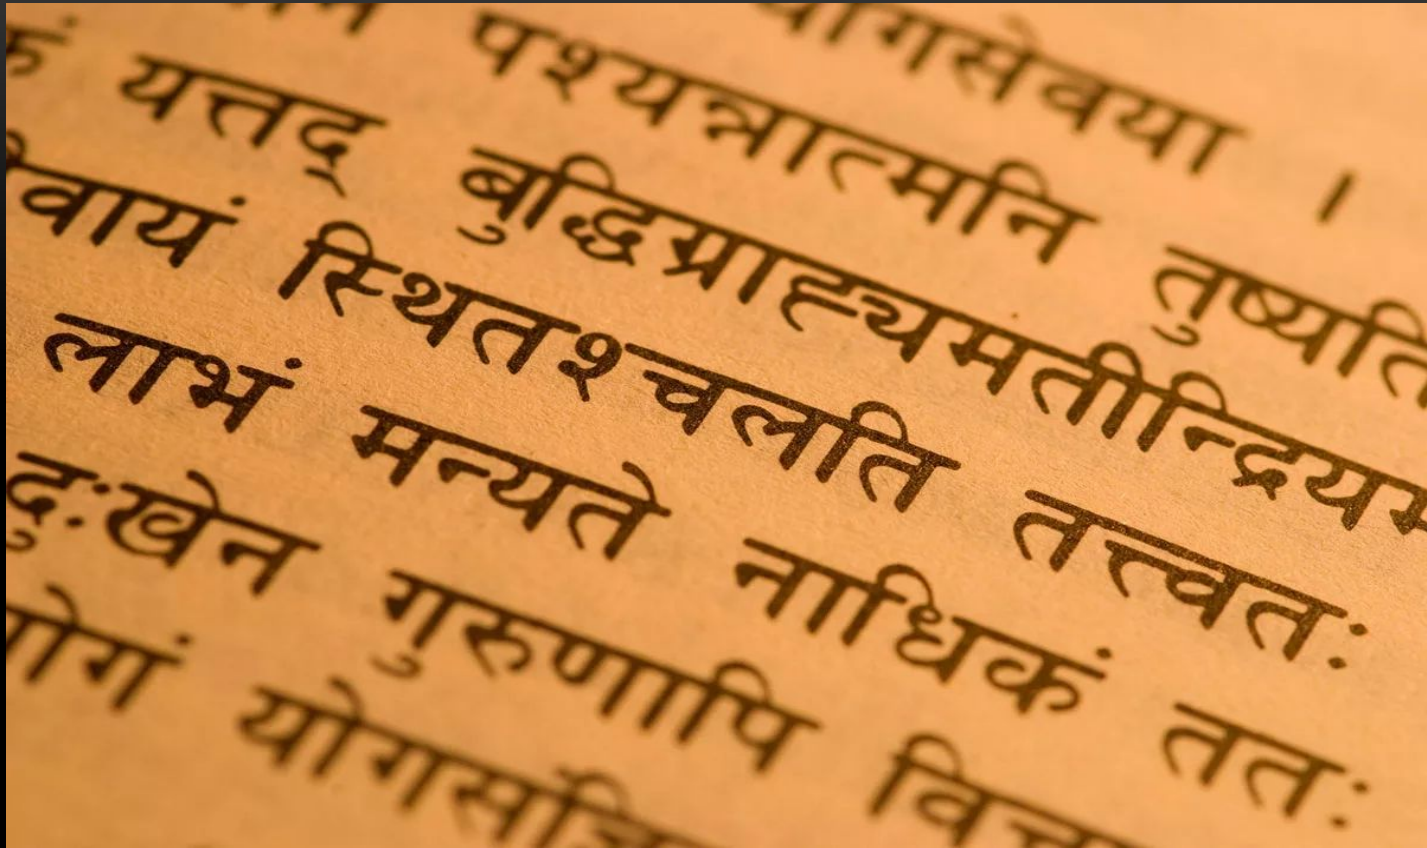 योगसेवया ।
पश्यन्नात्मनि तुष्यति
कं यत्तद् बुद्धिग्राह्यमतीन्द्रियम
ैवायं स्थितश्चलति तत्त्वतः
लाभं मन्यते नाधिकं ततः
दुःखेन गुरुणापि
योगं